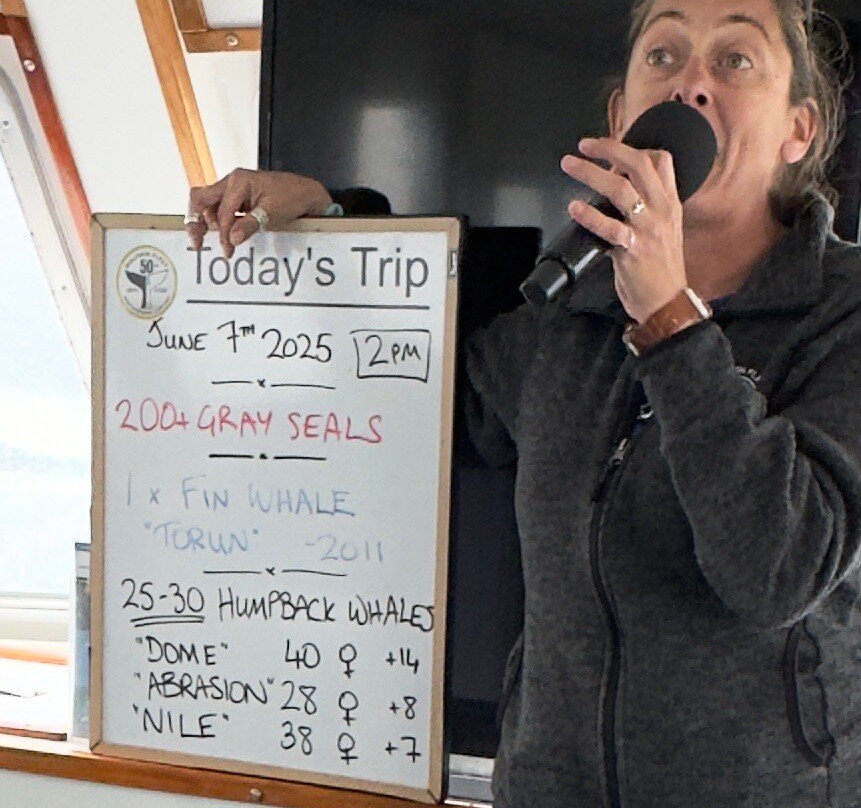 50
Today's Trip
JUNE 7TH 2025 2PM
200+ GRAY SEALS
1 x FIN WHALE
"TORUN" -2011
25-30 HUMPBACK WHALES
"DOME" 40 ♀ +14
"ABRASION" 28 ♀ +8
"NILE" 38 ♀ +7